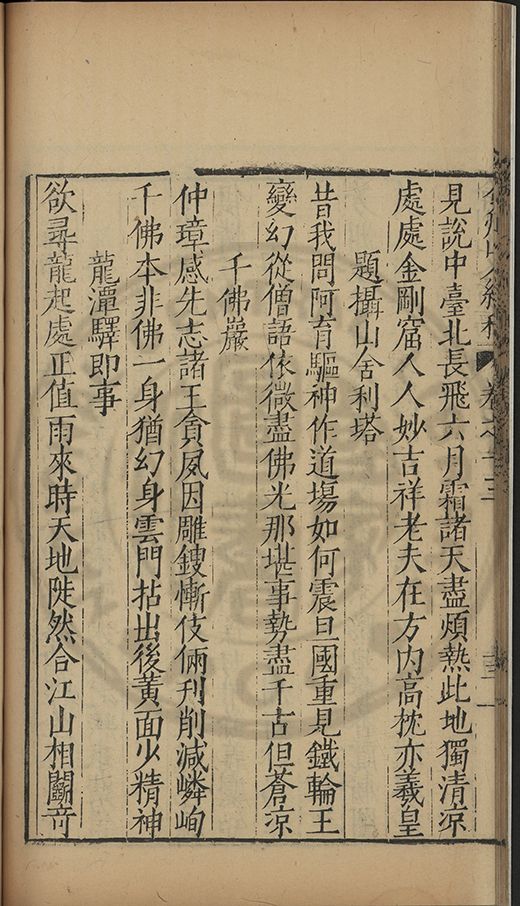 見說中臺北長飛六月霜諸天盡煩熱此地獨清凉
處處金剛窟人人妙吉祥老夫在方內高枕亦羲皇
題攝山舍利塔
昔我問阿育驅神作道場如何震旦國重見鐵輪王
變幻從僧語依微盡佛光那堪事勢盡千古但蒼凉
千佛巖
仲璋感先志諸王貪夙因雕鎪慚伎倆刋削減嶙峋
千佛本非佛一身猶幻身雲門拈出後黃面少精神
龍潭驛即事
欲尋龍起處正值雨來時天地陡然合江山相鬭竒